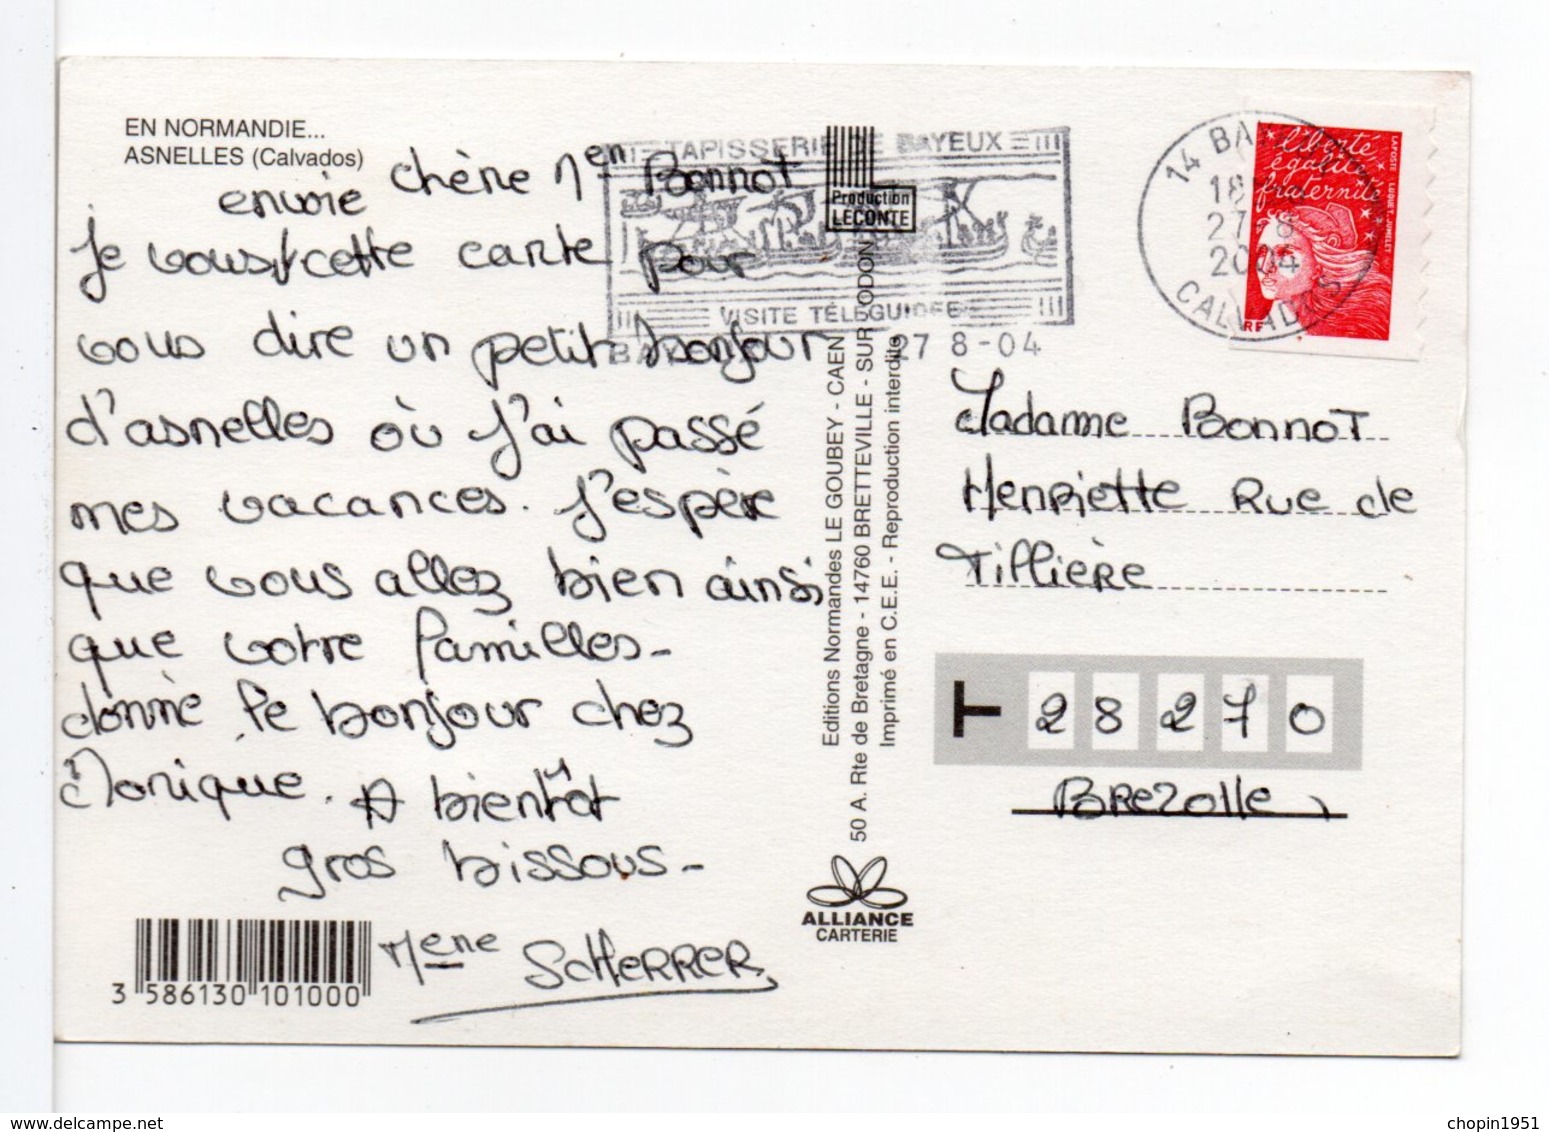 EN NORMANDIE...
ASNELLES (Calvados)
chère Men Bonnot
envoie
je vous cette carte pour
vous dire un petit bonjour
d'asnelles où j'ai passé
mes vacances. J'espère
que vous allez bien ainsi
que votre familles-
donné le bonjour chez
Monique. A bientôt
gros bissous-
Mene SCHERRER
3 586130 101000
TAPISSERIE DE BAYEUX
VISITE TÉLÉGUIDEE
27 8-04
Production
LECONTE
Editions Normandes LE GOUBEY - CAEN
50 A. Rte de Bretagne - 14760 BRETTEVILLE - SUR - ODON
Imprimé en C.E.E. - Reproduction interdite
ALLIANCE
CARTERIE
14 BA
18
27 8
2004
CALVADOS
liberté
égalité
fraternité
RF
LA POSTE LUQUET JUMELET
Madame Bonnot
Henriette Rue de
Tillière
T 28270
Brezolle
chopin1951